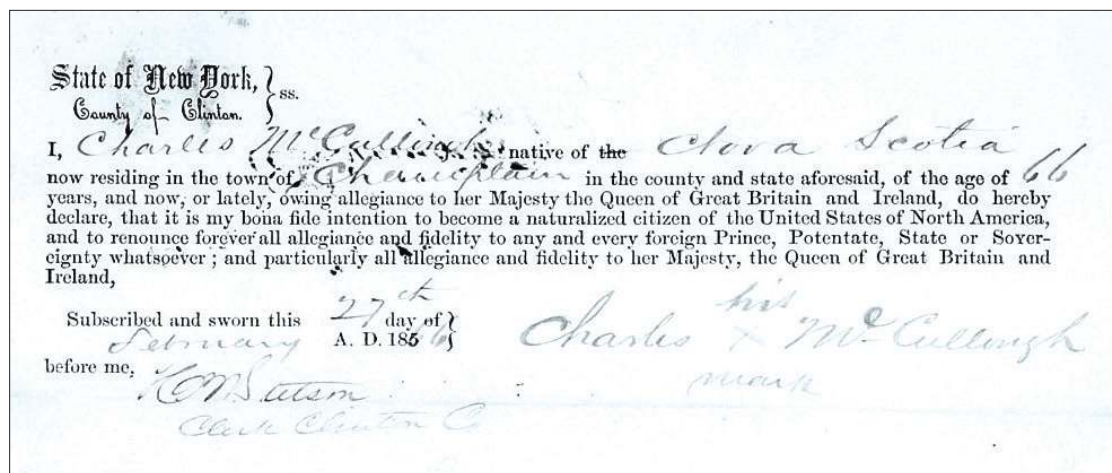 State of New York, } ss.
County of Clinton.
I, Charles McCullough native of the Nova Scotia
now residing in the town of Champlain in the county and state aforesaid, of the age of 66
years, and now, or lately, owing allegiance to her Majesty the Queen of Great Britain and Ireland, do hereby
declare, that it is my bona fide intention to become a naturalized citizen of the United States of North America,
and to renounce forever all allegiance and fidelity to any and every foreign Prince, Potentate, State or Sover-
eignty whatsoever ; and particularly all allegiance and fidelity to her Majesty, the Queen of Great Britain and
Ireland,
his
Subscribed and sworn this 27th day of } Charles x McCullough
February A. D. 185
mark
before me,
Clerk Clinton Co